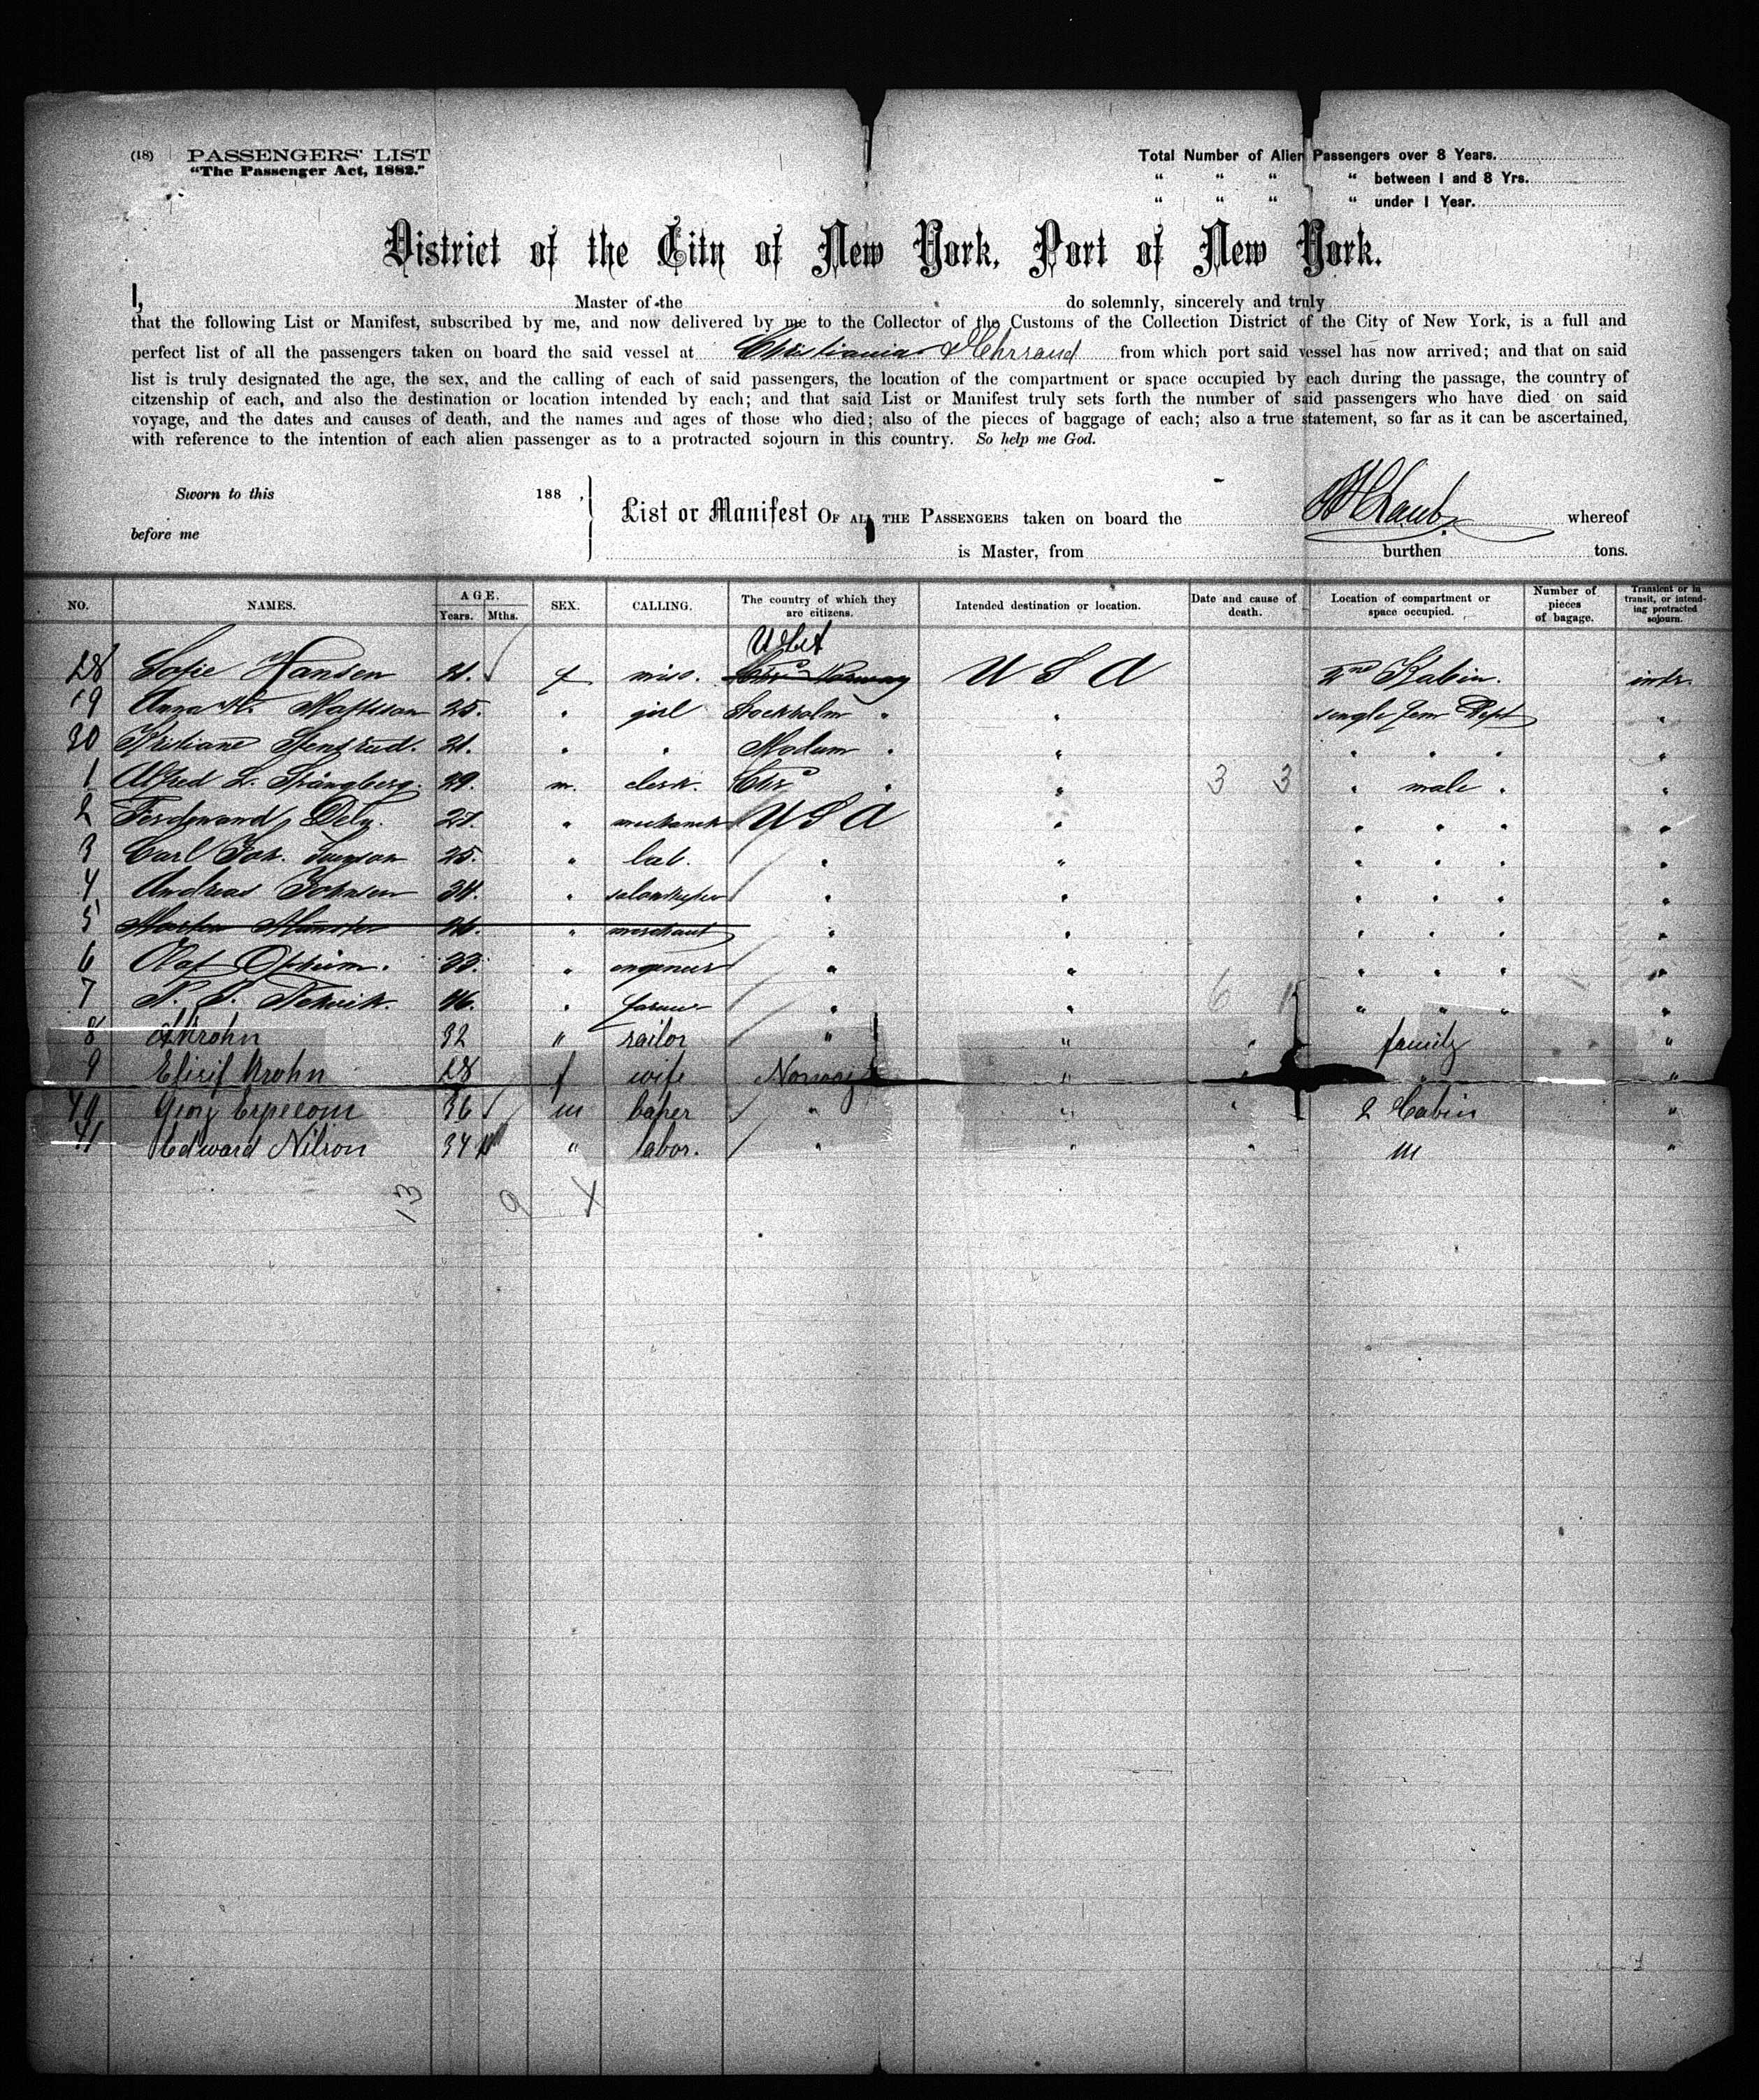 (18) PASSENGERS' LIST
"The Passenger Act, 1882."
Total Number of Alien Passengers over 8 Years.
" " " " between 1 and 8 Yrs.
" " " " under 1 Year.
District of the City of New York, Port of New York.
I, Master of the do solemnly, sincerely and truly
that the following List or Manifest, subscribed by me, and now delivered by me to the Collector of the Customs of the Collection District of the City of New York, is a full and
perfect list of all the passengers taken on board the said vessel at Christiania & Chrsand from which port said vessel has now arrived; and that on said
list is truly designated the age, the sex, and the calling of each of said passengers, the location of the compartment or space occupied by each during the passage, the country of
citzenship of each, and also the destination or location intended by each; and that said List or Manifest truly sets forth the number of said passengers who have died on said
voyage, and the dates and causes of death, and the names and ages of those who died; also of the pieces of baggage of each; also a true statement, so far as it can be ascertained,
with reference to the intention of each alien passenger as to a protracted sojourn in this country. So help me God.
Sworn to this 188 ,
before me
List or Manifest OF ALL THE PASSENGERS taken on board the whereof
is Master, from burthen tons.
NO. NAMES. AGE. Years. Mths. SEX. CALLING. The country of which they are citizens. Intended destination or location. Date and cause of death. Location of compartment or space occupied. Number of pieces of bagage. Transient or in transit, or intending protracted sojourn.
28 Sofie Hansen 21. f miss. Norway U S A 2nd Kabin.
29 Anna Mattsson 25. " girl Stockholm " " single fem Dept "
30 Kristiane Stensrud. 21. " " Modum " " " " " "
1 Alfred L. Strångberg. 29. m. clerk. Chra " " 3 3 " male " "
2 Ferdinand 27. " U S A " " " " "
3 Carl Joh. 25. " lab. " " " " " "
4 Andreas Johnsen 34. " " " " " " "
5 46. " merchant " " " " " "
6 Olaf Opheim. 33. " engineer " " " " " "
7 46. " " " 6 " " " "
8 Krohn 32 " sailor " " " family "
9 Krohn 28 f wife Norway " " " "
40 Georg 36 m baker " " " 2 Cabin "
41 Edward Nilson 34 " labor. " " " m "
13 9 X